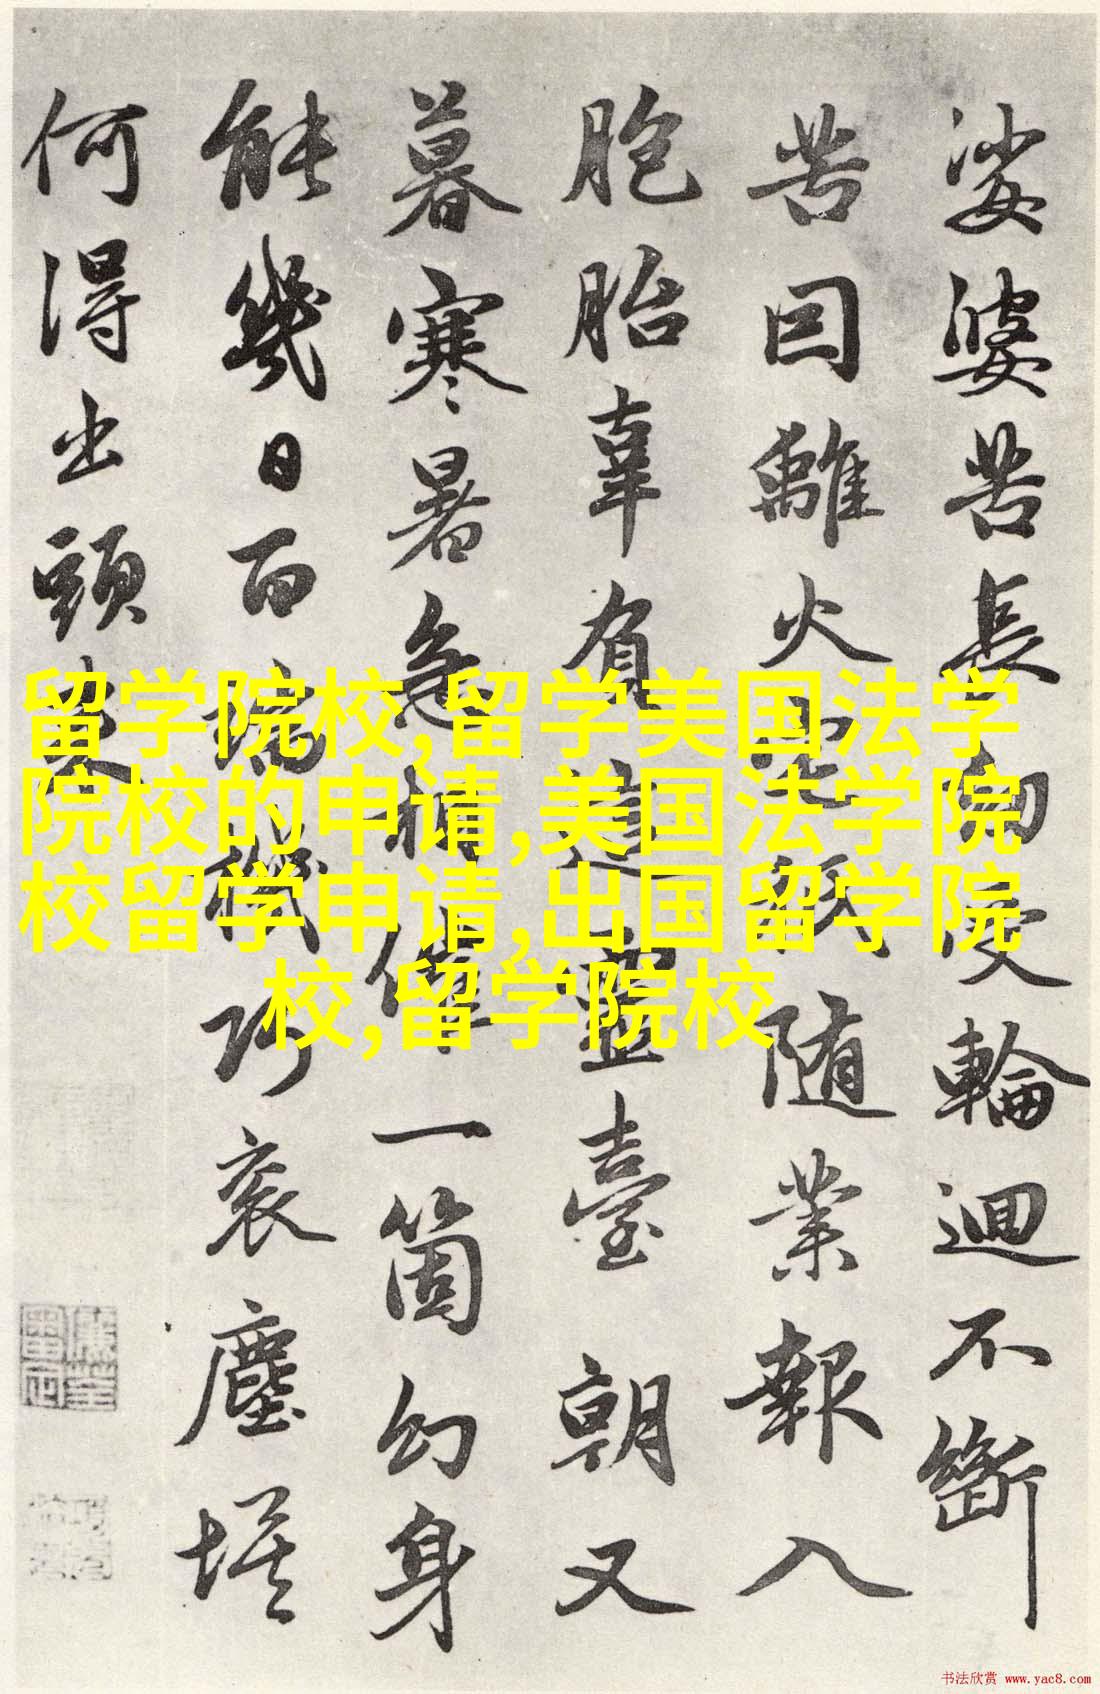 娑婆苦長劫受輪迴不斷
苦因離火宅係随業報入
胞胎辜負這靈臺朝又
暮寒暑急相催一箇幻身
能幾日百端機巧衮塵埃
何得出頭来
留学院校,留学美国法学
院校的申请,美国法学院
校留学申请,出国留学院
校,留学院校
书法欣赏 www.yac8.com